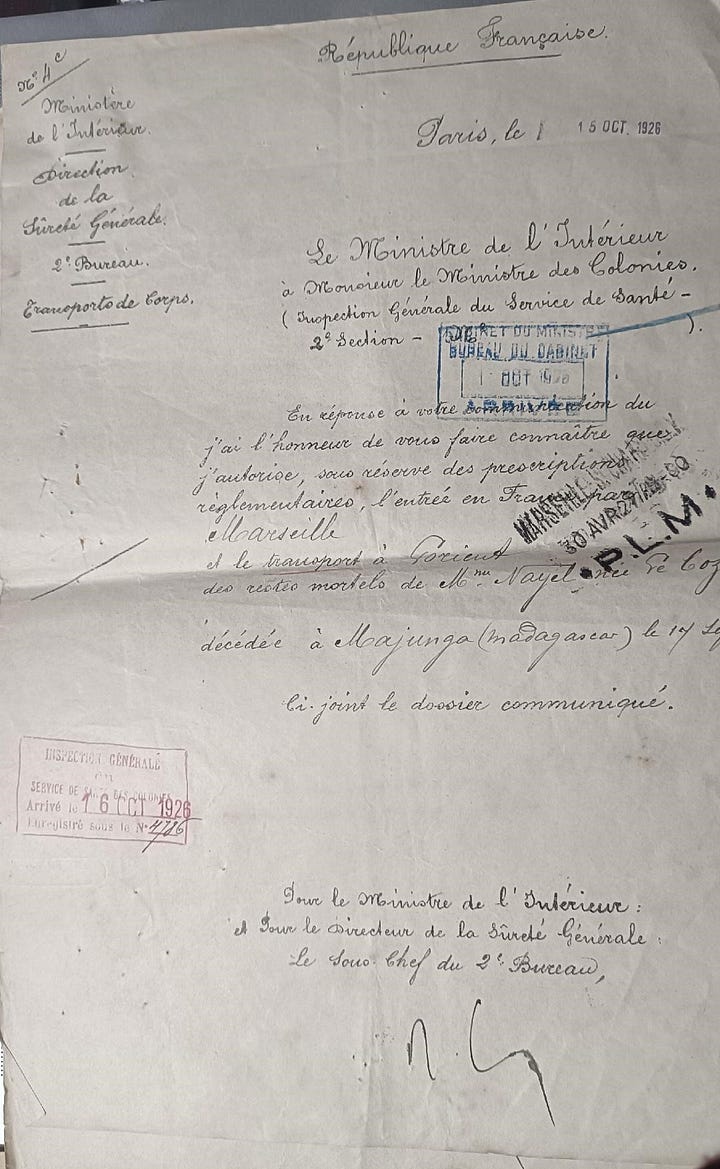 République Française.
N° 4c
Ministère
de l'Intérieur.
Direction
de la
Sûreté Générale.
2e Bureau.
Transports de Corps.
Paris, le 15 OCT. 1926
Le Ministre de l'Intérieur
à Monsieur le Ministre des Colonies.
( Inspection Générale du Service de Santé -
2e Section - ).
CABINET DU MINISTRE
BUREAU DU CABINET
OCT 1926
ARRIVÉE
En réponse à votre communication du
j'ai l'honneur de vous faire connaître que
j'autorise, sous réserve des prescriptions
règlementaires, l'entrée en France par
Marseille
et le transport à Lorient
des restes mortels de Mme Nayel née Le Coz
MARSEILLE
30 AVR 27
P.L.M.
décédée à Majunga (Madagascar) le 14
Ci-joint le dossier communiqué.
INSPECTION GÉNÉRALE
DU
SERVICE DE SANTÉ DES COLONIES
Arrivé le 16 OCT 1926
Enregistré sous le N° 4786
Pour le Ministre de l'Intérieur :
et Pour le Directeur de la Sûreté Générale :
Le Sous-Chef du 2e Bureau,